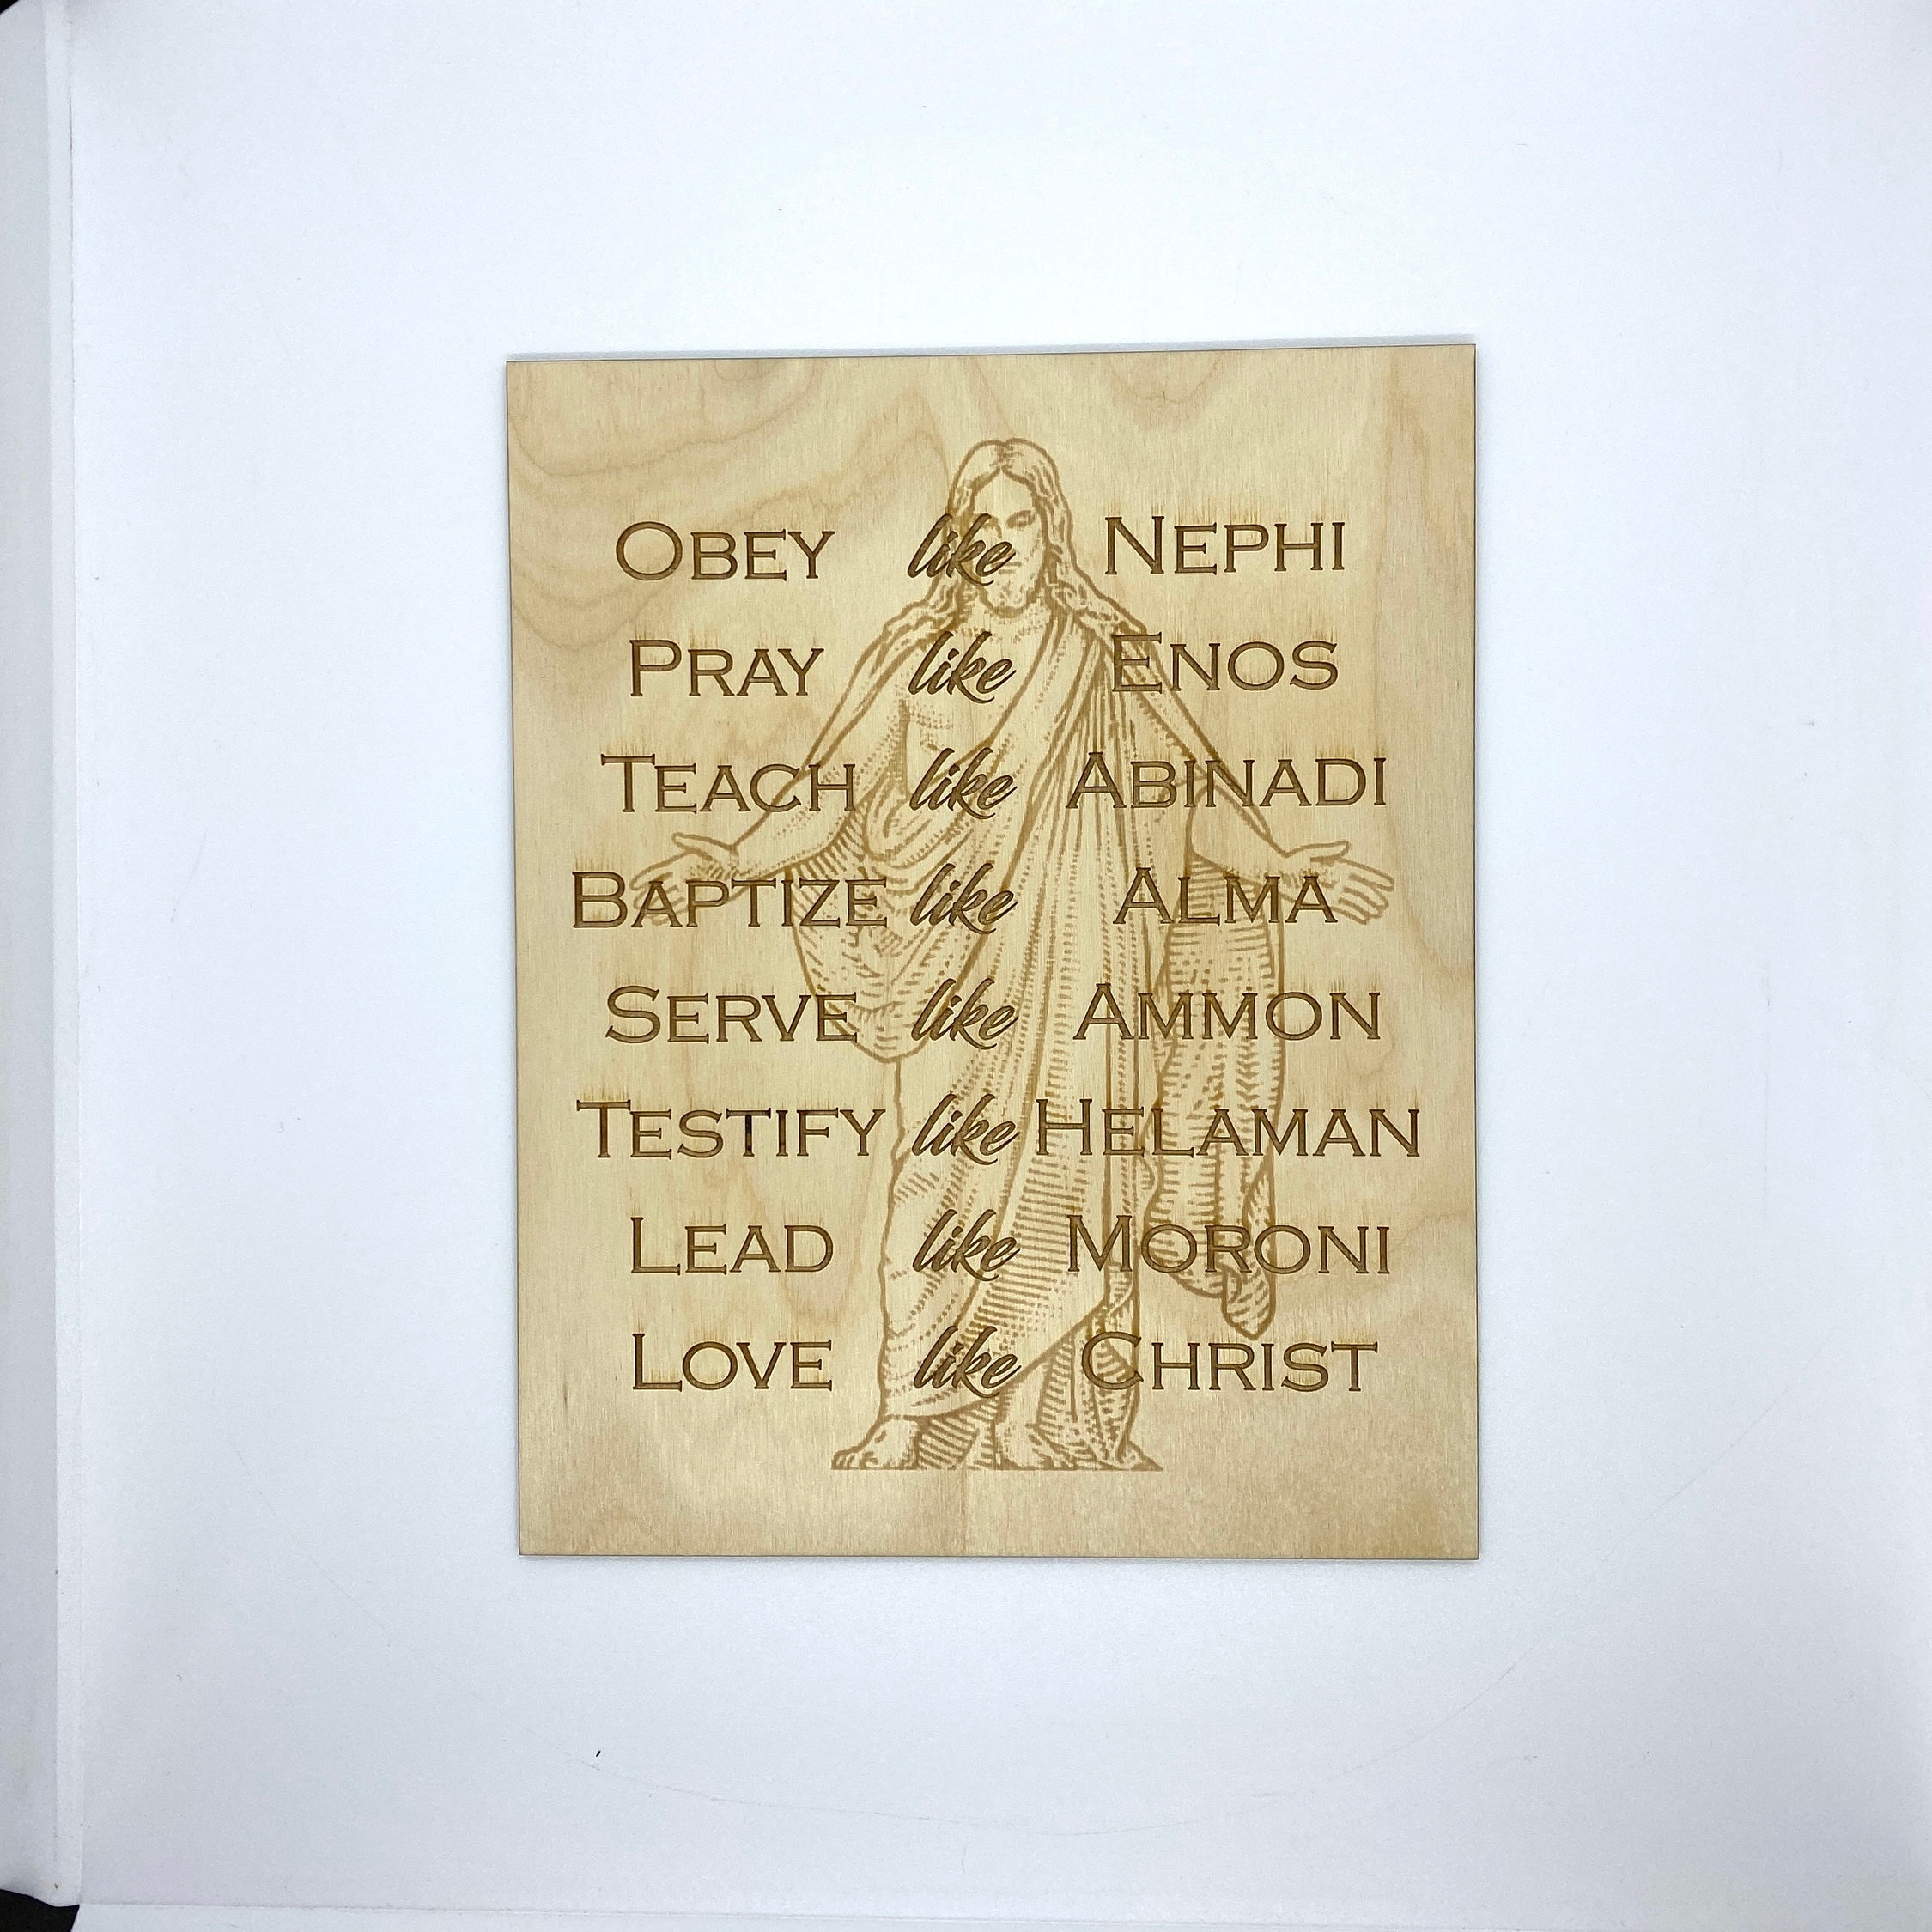 Obey like Nephi
Pray like Enos
Teach like Abinadi
Baptize like Alma
Serve like Ammon
Testify like Helaman
Lead like Moroni
Love like Christ